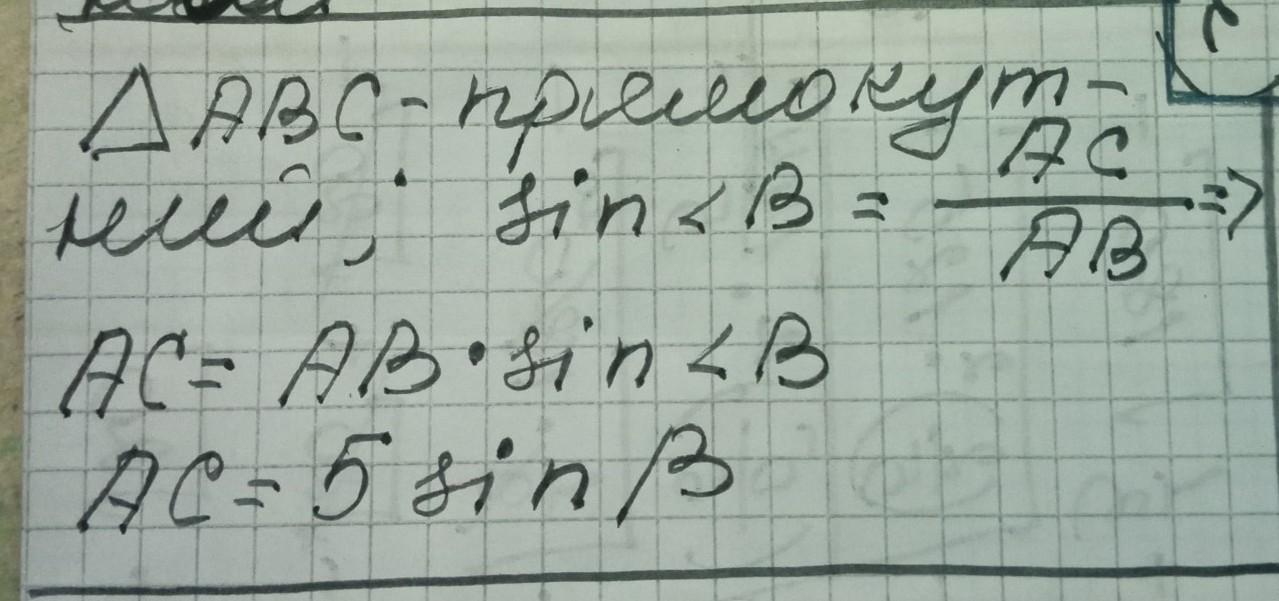 △ABC - прямокут-
ний; sin<B = AC/AB =>
AC = AB · sin<B
AC = 5 sin β